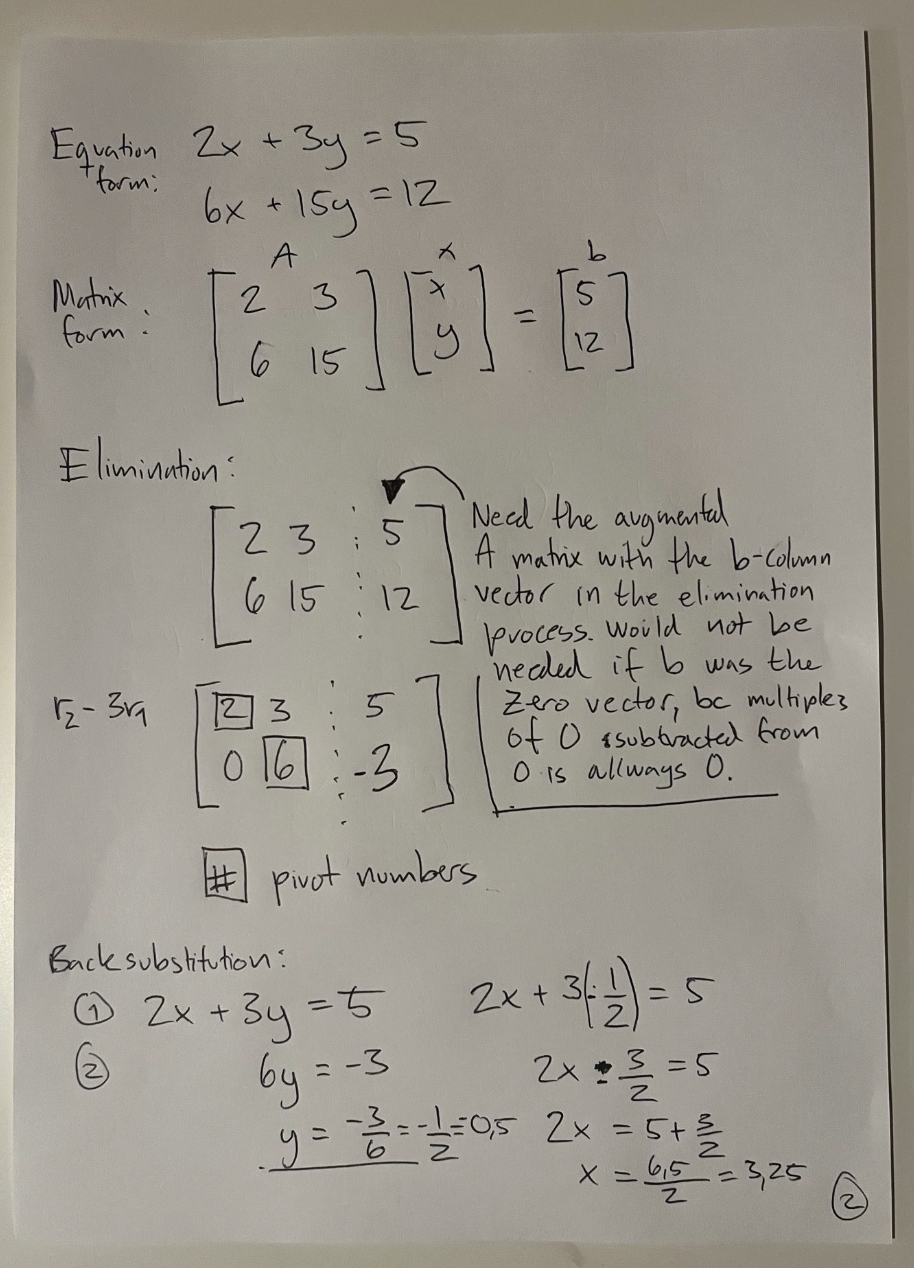 Equation form: 2x + 3y = 5
6x + 15y = 12
A x b
Matrix form: [2 3] [x] = [5]
[6 15] [y] [12]
Elimination:
[2 3 ⋮ 5]
[6 15 ⋮ 12]
Need the augmental
A matrix with the b-column
vector in the elimination
process. Would not be
needed if b was the
zero vector, bc multiples
of 0 subtracted from
0 is allways 0.
r₂ - 3r₁ [2 3 ⋮ 5]
[0 6 ⋮ -3]
# pivot numbers
Back substitution:
① 2x + 3y = 5
② 6y = -3
y = -3/6 = -1/2 = 0,5
2x + 3(-1/2) = 5
2x - 3/2 = 5
2x = 5 + 3/2
x = 6,5/2 = 3,25
②